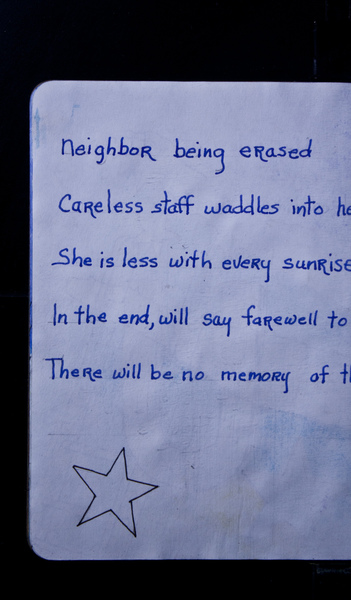 Neighbor being erased
Careless staff waddles into he
She is less with every sunrise
In the end, will say farewell to
There will be no memory of th